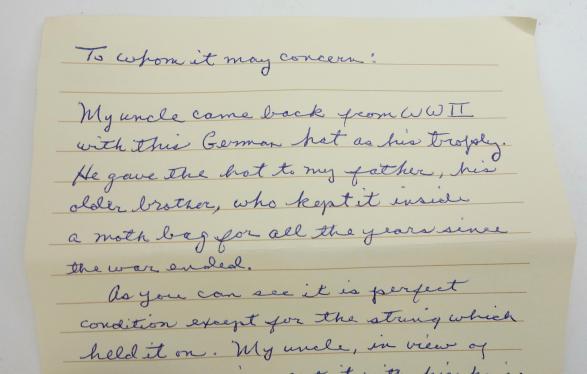 To whom it may concern:
My uncle came back from WWII
with this German hat as his trophy.
He gave the hat to my father, his
older brother, who kept it inside
a moth bag for all the years since
the war ended.
As you can see it is perfect
condition except for the string which
held it on. My uncle, in view of